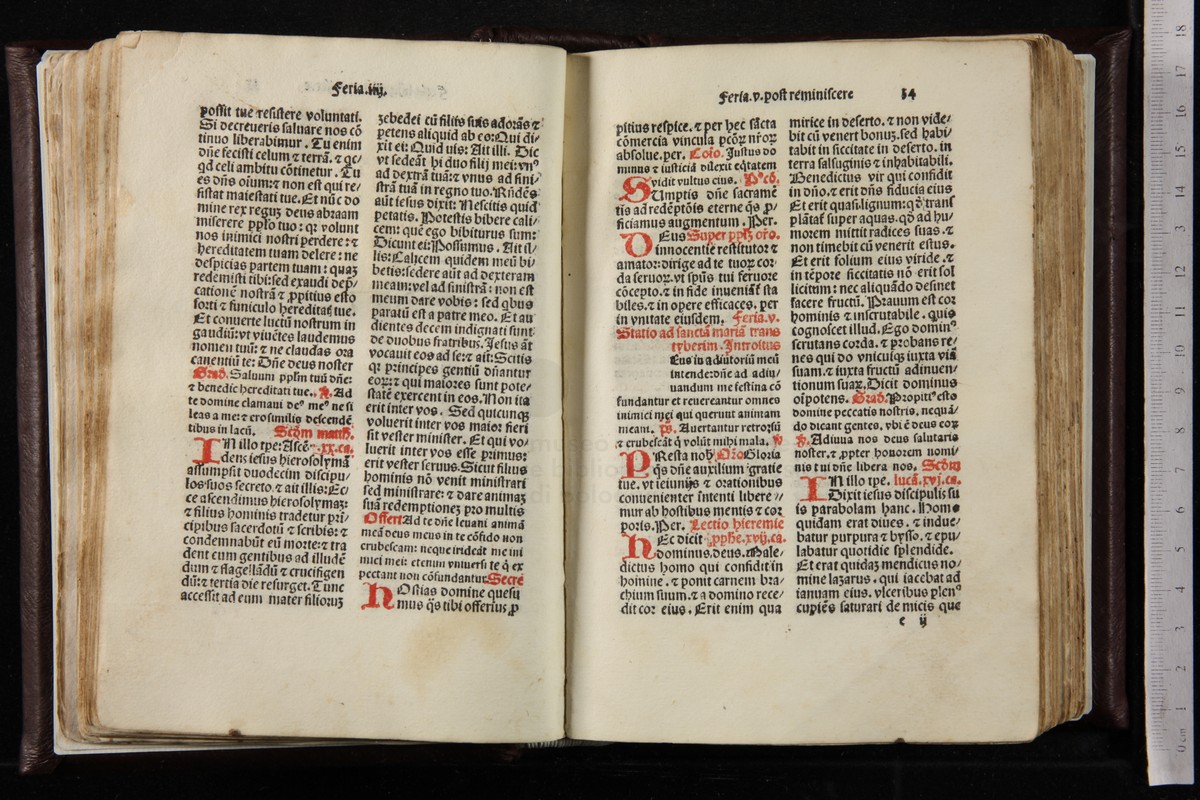 Feria.iiij.
possit tue resistere voluntati.
Si decreueris saluare nos cō
tinuo liberabimur. Tu enim
dn̄e fecisti celum ⁊ terrā. ⁊ qc̄/
qd celi ambitu cōtinetur. Tu
es dn̄s oīum:⁊ non est qui re/
sistat maiestati tue. Et nūc do
mine rex reguꝫ deus abraam
miserere pplo tuo: qꝛ volunt
nos inimici nostri perdere: ⁊
hereditatem tuam delere: ne
despicias partem tuam: quaꝫ
redemisti tibi:sed exaudi dep̄/
cationē nostrā ⁊ ꝓpitius esto
sorti ⁊ funiculo hereditaꝭ tue.
Et conuerte luctū nostrum in
gaudiū:vt viuētes laudemus
nomen tuū: ⁊ ne claudas ora
canentiū te: Dn̄e deus noster
Grad. Saluum pplm̄ tuū dn̄e:
⁊ benedic hereditati tue. ℟. Ad
te domine clamaui deꝰ meꝰ ne si
leas a me:⁊ ero similis descendē
tibus in lacū. Scd̄m matth̄.
IN illo tpe: Ascē .xx.ca.
dens iesus hierosolymā
assumpsit duodecim discipu/
los suos secreto.⁊ ait illis: Ec/
ce ascendimus hierosolymaꝫ:
⁊ filius hominis tradetur pri/
cipibus sacerdotū ⁊ scribis: ⁊
condemnabūt eū morte:⁊ tra
dent eum gentibus ad illudē
dum ⁊ flagellādū ⁊ crucifigen
dū:⁊ tertia die resurget. Tunc
accessit ad eum mater filioruꝫ
zebedei cū filiis suis adorās ⁊
petens aliquid ab eo: Qui di/
xit ei: Quid vis: Ait illi. Dic
vt sedeāt hi duo filij mei:vnꝰ
ad dextrā tuā:⁊ vnus ad sini/
strā tuā in regno tuo. Rn̄dēs
aūt iesus dixit: Nescitis quid
petatis. Potestis bibere cali/
cem: quē ego bibiturus sum:
Dicunt ei: Possumus. Ait il/
lis: Calicem quidem meū bi/
betis:sedere aūt ad dexteram
meam:vel ad sinistrā: non est
meum dare vobis: sed qbus
paratū est a patre meo. Et au
dientes decem indignati sunt
de duobus fratribus. Jesus āt
vocauit eos ad se:⁊ ait: Scitis
qꝛ principes gentiū dn̄antur
eoꝝ: ⁊ qui maiores sunt pote/
statē exercent in eos. Non ita
erit inter vos. Sed quicunqꝫ
voluerit inter vos maior fieri
sit vester minister. Et qui vo/
luerit inter vos esse primus:
erit vester seruus. Sicut filius
hominis nō venit ministrari
sed ministrare: ⁊ dare animaꝫ
suā redemptioneꝫ pro multis
Offert. Ad te dn̄e leuani animā
meā deus meus in te cōfido non
erubescam: neque irideāt me ini
mici mei: etenim vniuersi te q̄ ex
pectant non cōfundantur. Secre
HOstias domine quesu
mus q̄s tibi offerius ꝓ
Feria.v.post reminiscere 54
pitius respice.⁊ per hec sācta
cōmercia vincula pcōꝝ nr̄oꝝ
absolue.per. Cōio. Justus do
minus ⁊ iusticiā dilexit eq̄tatem
vidit vultus eius. P̄ꝰcō.
SUmptis dn̄e sacramē
tis ad redēptōis eterne q̄s ꝓ/
ficiamus augmentum. Per.
DEus Super pplꝫ or̄o.
innocentie restitutor ⁊
amator:dirige ad te tuoꝝ cor
da seruoꝝ.vt spūs tui feruore
cōcepto.⁊ in fide inueniāt sta
biles.⁊ in opere efficaces. per
in vnitate eiusdem. Feria.v.
Statio ad sanctā mariā trans
tyberim. Introitus
Eus in adiutoriū meū
intende:dn̄e ad adiu
uandum me festina cō
fundantur et reuereantur omnes
inimici mei qui querunt animam
meam. ps. Auertantur retrorsū
⁊ erubescāt q̄ volūt mihi mala. ℣
PResta nob̄ Or̄o Gloria
q̄s dn̄e auxilium gratie
tue.vt ieiunijs ⁊ orationibus
conuenienter intenti libere //
mur ab hostibus mentis ⁊ cor
poris. Per. Lectio hieremie
HEc dicit .pphē.xvij.ca.
dominus.deus. Male/
dictus homo qui confidit in
homine.⁊ ponit carnem bra/
chium suum.⁊ a domino rece/
dit cor eius. Erit enim qua
mirice in deserto.⁊ non vide/
bit cū venert bonuꝫ.sed habi/
tabit in siccitate in deserto. in
terra salsuginis ⁊ inhabitabili.
Benedictus vir qui confidit
in dn̄o.⁊ erit dn̄s fiducia eius
Et erit quasi.lignum: qd̄ trans
plātaꝭ super aquas.qd̄ ad hu/
morem mittit radices suas.⁊
non timebit cū venerit estus.
Et erit folium eius viride.⁊
in tēpore siccitatis nō erit sol
licitum: nec aliquādo desinet
facere fructū. Prauum est cor
hominis ⁊ inscrutabile. quis
cognoscet illud. Ego dominꝰ
scrutans corda.⁊ probans re/
nes qui do vnicuiqꝫ iuxta viā
suam.⁊ iuxta fructū adinuen/
tionum suaꝝ. Dicit dominus
oīpotens. Grad. Propitiꝰ esto
domine peccatis nostris. nequā/
do dicant gentes. vbi ē deus eoꝝ
℣. Adiuua nos deus salutaris
noster.⁊ ꝓpter honorem nomi/
nis tui dn̄e libera nos. Scd̄m
IN illo tpe. lucā.xvj.ca.
Dixit iesus discipulis su
is parabolam hanc. Homo
quidam erat diues. ⁊ indue/
batur purpura ⁊ bysso.⁊ epu/
labatur quotidie splendide.
Et erat quidaꝫ mendicus no/
mine lazarus. qui iacebat ad
ianuam eius. vlceribus plenꝰ
cupiēs saturari de micis que
e ij